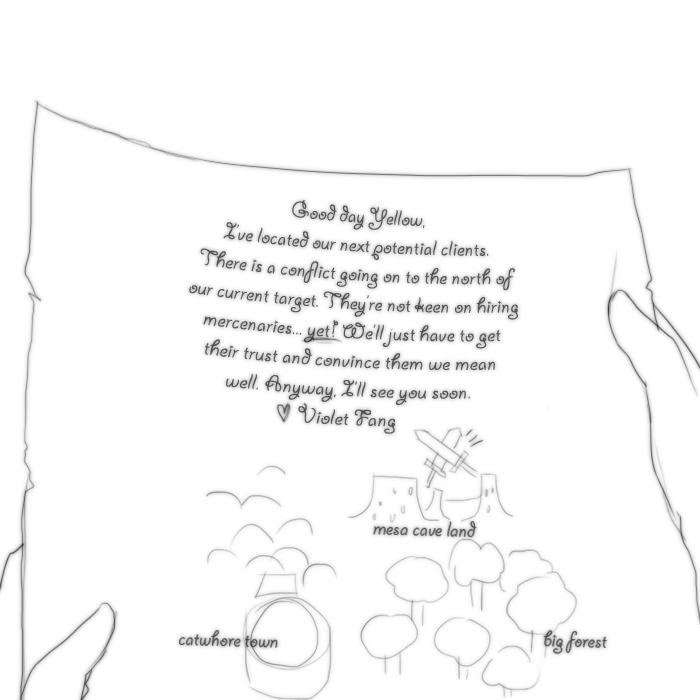 Good day Yellow,
I've located our next potential clients.
There is a conflict going on to the north of
our current target. They're not keen on hiring
mercenaries... yet! We'll just have to get
their trust and convince them we mean
well. Anyway, I'll see you soon.
♥ Violet Fang
mesa cave land
catwhore town
big forest